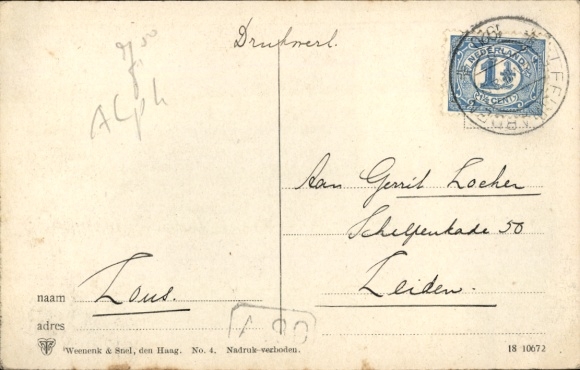 Drukwerk.
NEDERLAND
1½
1½ CENT
Alph
Aan Gerrit Locher
Schelpenkade 50
Leiden.
naam Lous.
adres
Weenenk & Snel, den Haag. No. 4. Nadruk verboden.
18 10672